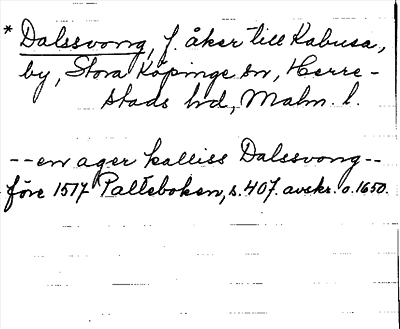 * Dalssvong, f. åker till Kabusa,
by, Stora Köpinge sn, Herre-
stads hd, Malm. l.
--en ager kalliss Dalssvong--
före 1517 Palteboken, s. 407. avskr. o. 1650.